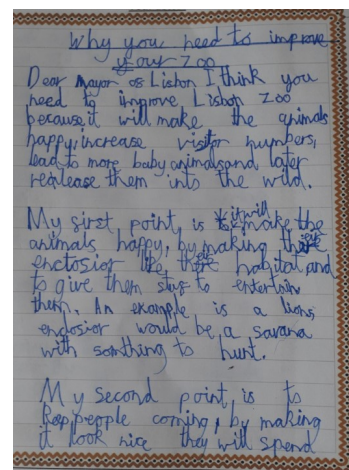 Why you need to improve
your Zoo
Dear mayor os Lisbon I think you
need to improve Lisbon Zoo
because it will make the animals
happy, increase visitor numbers,
lead to more baby animals and later
realease them into the wild.
My first point, is it will make the
animals happy, by making
enclosior like habitat and
to give them stuf to entertain
them. An example is a lions
enclosior would be a savana
with somthing to hunt.
My second point is to
keep people coming, by making
it look nice they will spend